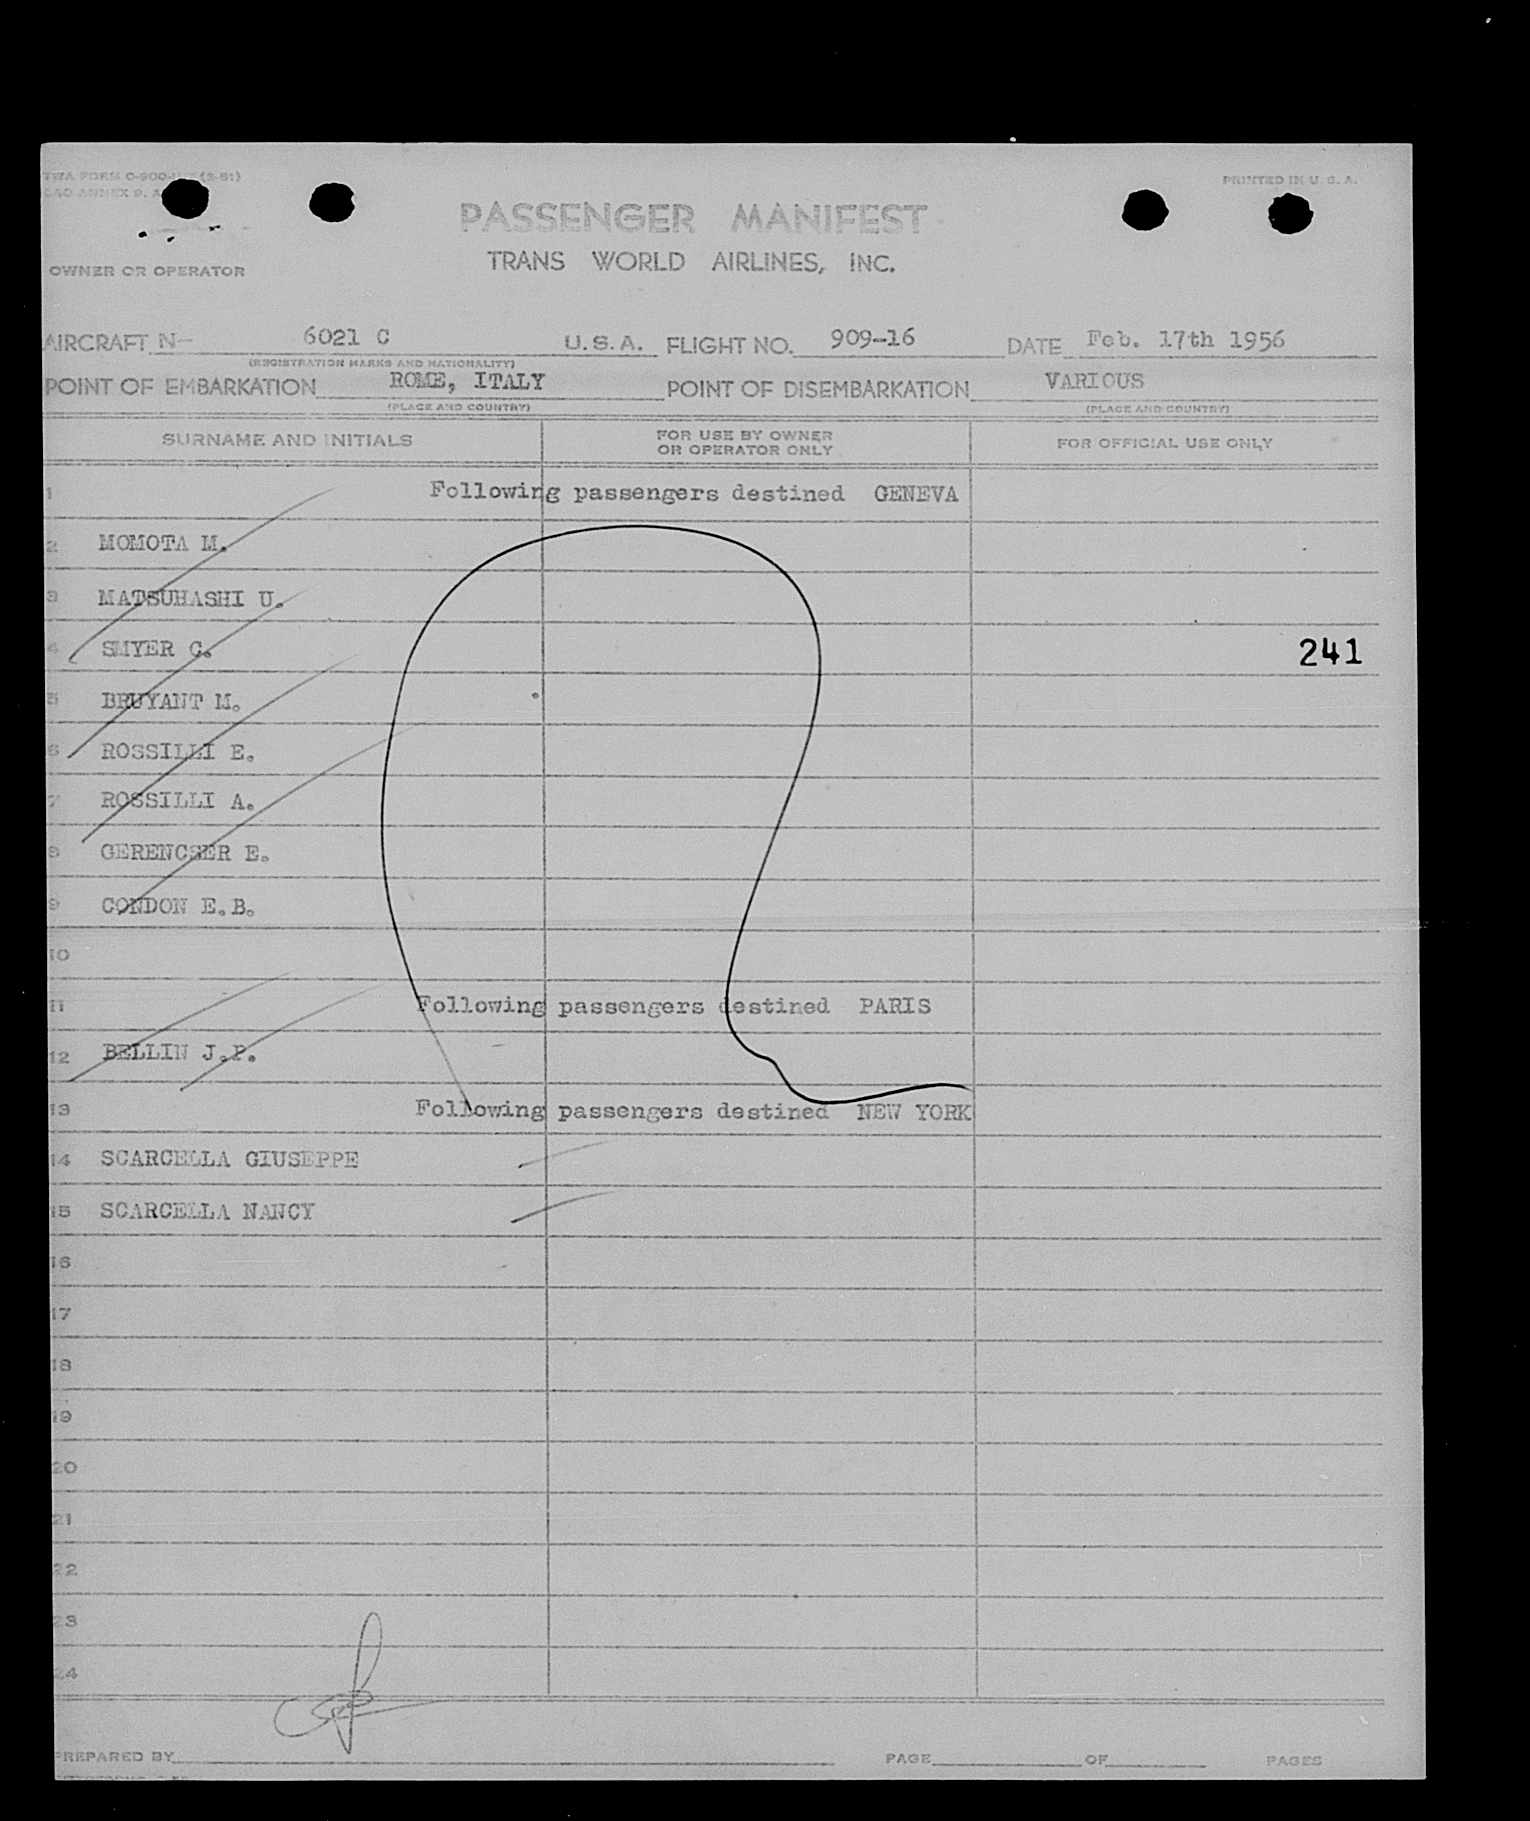 TWA FORM O-900- (3-51) PRINTED IN U. S. A.
ANNEX 9.
PASSENGER MANIFEST
TRANS WORLD AIRLINES, INC.
OWNER OR OPERATOR
AIRCRAFT N- 6021 C U. S. A. FLIGHT NO. 909-16 DATE Feb. 17th 1956
(REGISTRATION MARKS AND NATIONALITY)
POINT OF EMBARKATION ROME, ITALY POINT OF DISEMBARKATION VARIOUS
(PLACE AND COUNTRY) (PLACE AND COUNTRY)
SURNAME AND INITIALS FOR USE BY OWNER OR OPERATOR ONLY FOR OFFICIAL USE ONLY
1 Following passengers destined GENEVA
2 MOMOTA M.
3 MATSUHASHI U.
4 SMYER C. 241
5 BRUYANT M.
6 ROSSILLI E.
7 ROSSILLI A.
8 GERENCSER E.
9 CONDON E.B.
10
11 Following passengers destined PARIS
12 BELLIN J.P.
13 Following passengers destined NEW YORK
14 SCARCELLA GIUSEPPE
15 SCARCELLA NANCY
16
17
18
19
20
21
22
23
24
PREPARED BY PAGE OF PAGES